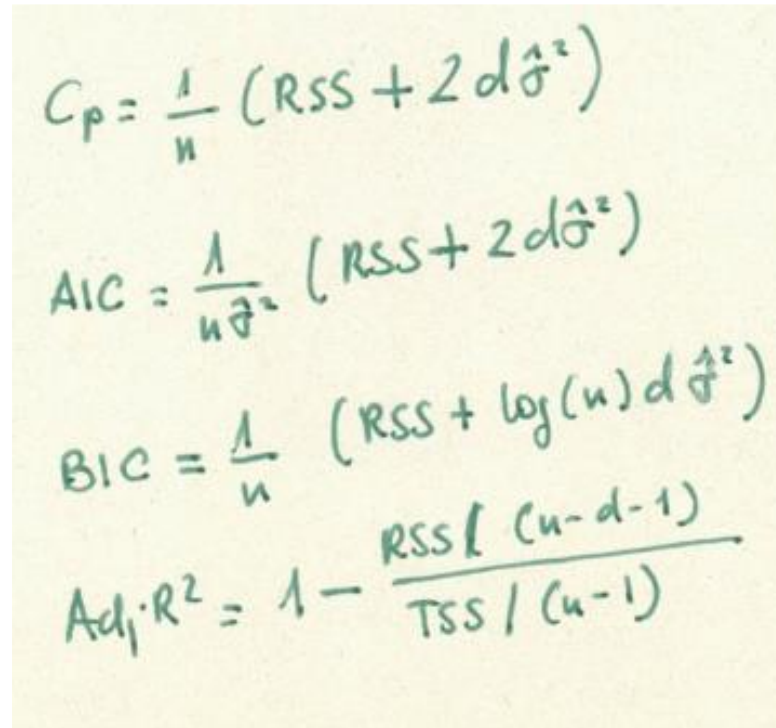 Cp = 1/n (RSS + 2dσ̂²)
AIC = 1/nσ̂² (RSS + 2dσ̂²)
BIC = 1/n (RSS + log(n)dσ̂²)
Adj.R² = 1 - RSS/(n-d-1) / TSS/(n-1)